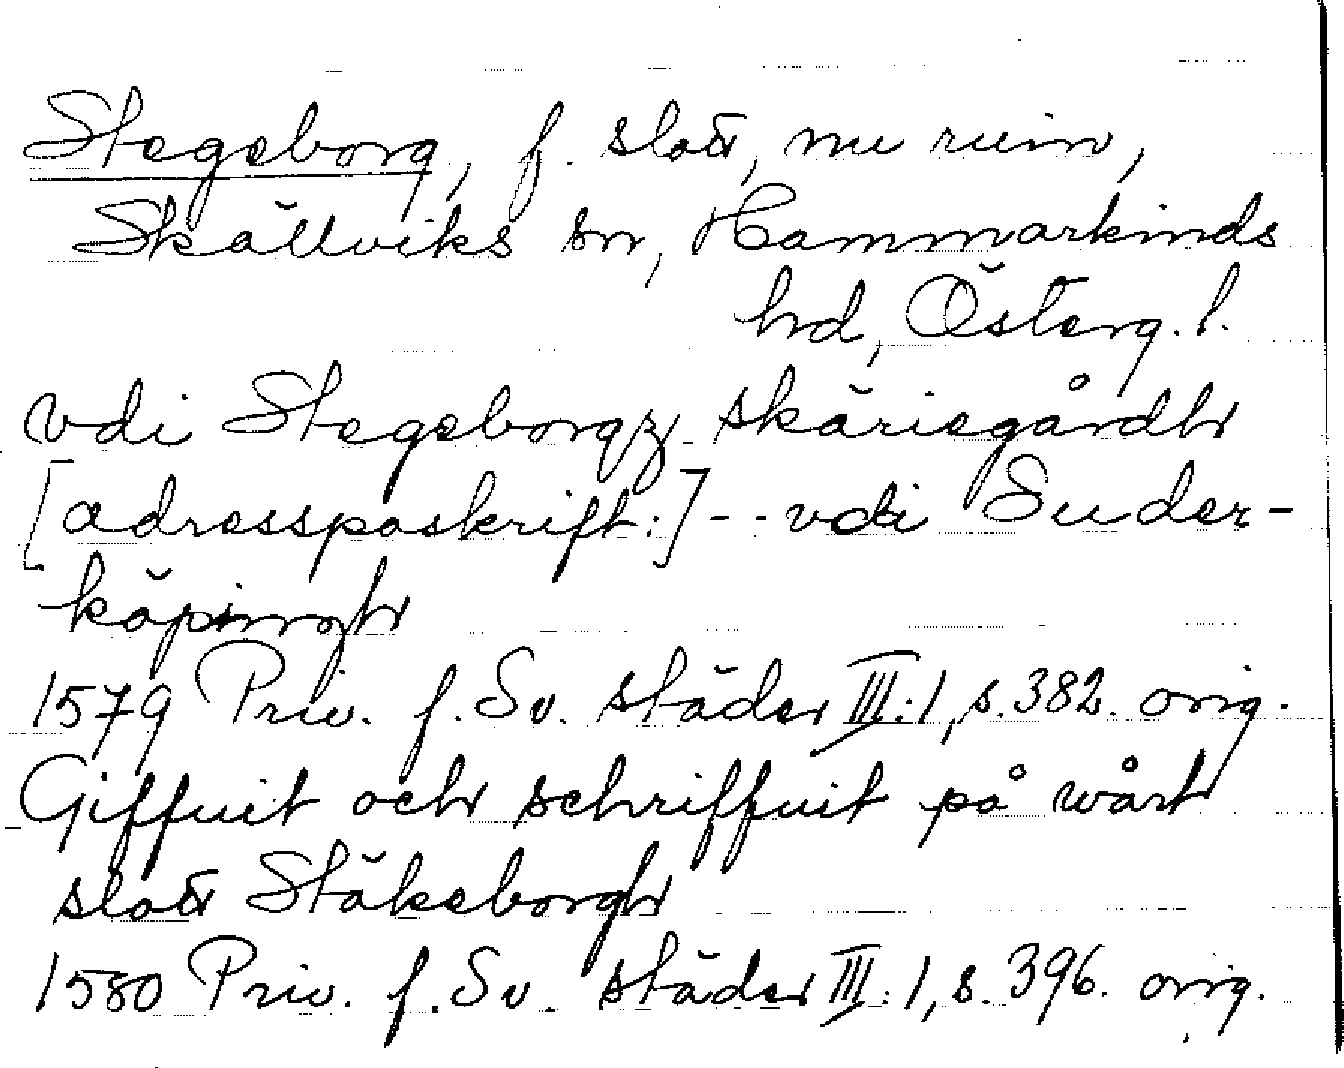 Stegeborg, f. slott, nu ruin,
Skällviks sn, Hammarkinds
hd, Österg. l.
vdi Stegeborgz skäriegårdh
[adresspåskrift:] - - vdi Suder-
köpingh
1579 Priv. f. Sv. städer III:1, s. 382. orig.
Giffuit och schriffuit på wårt
slott Stäkeborgh
1580 Priv. f. Sv. städer III:1, s. 396. orig.